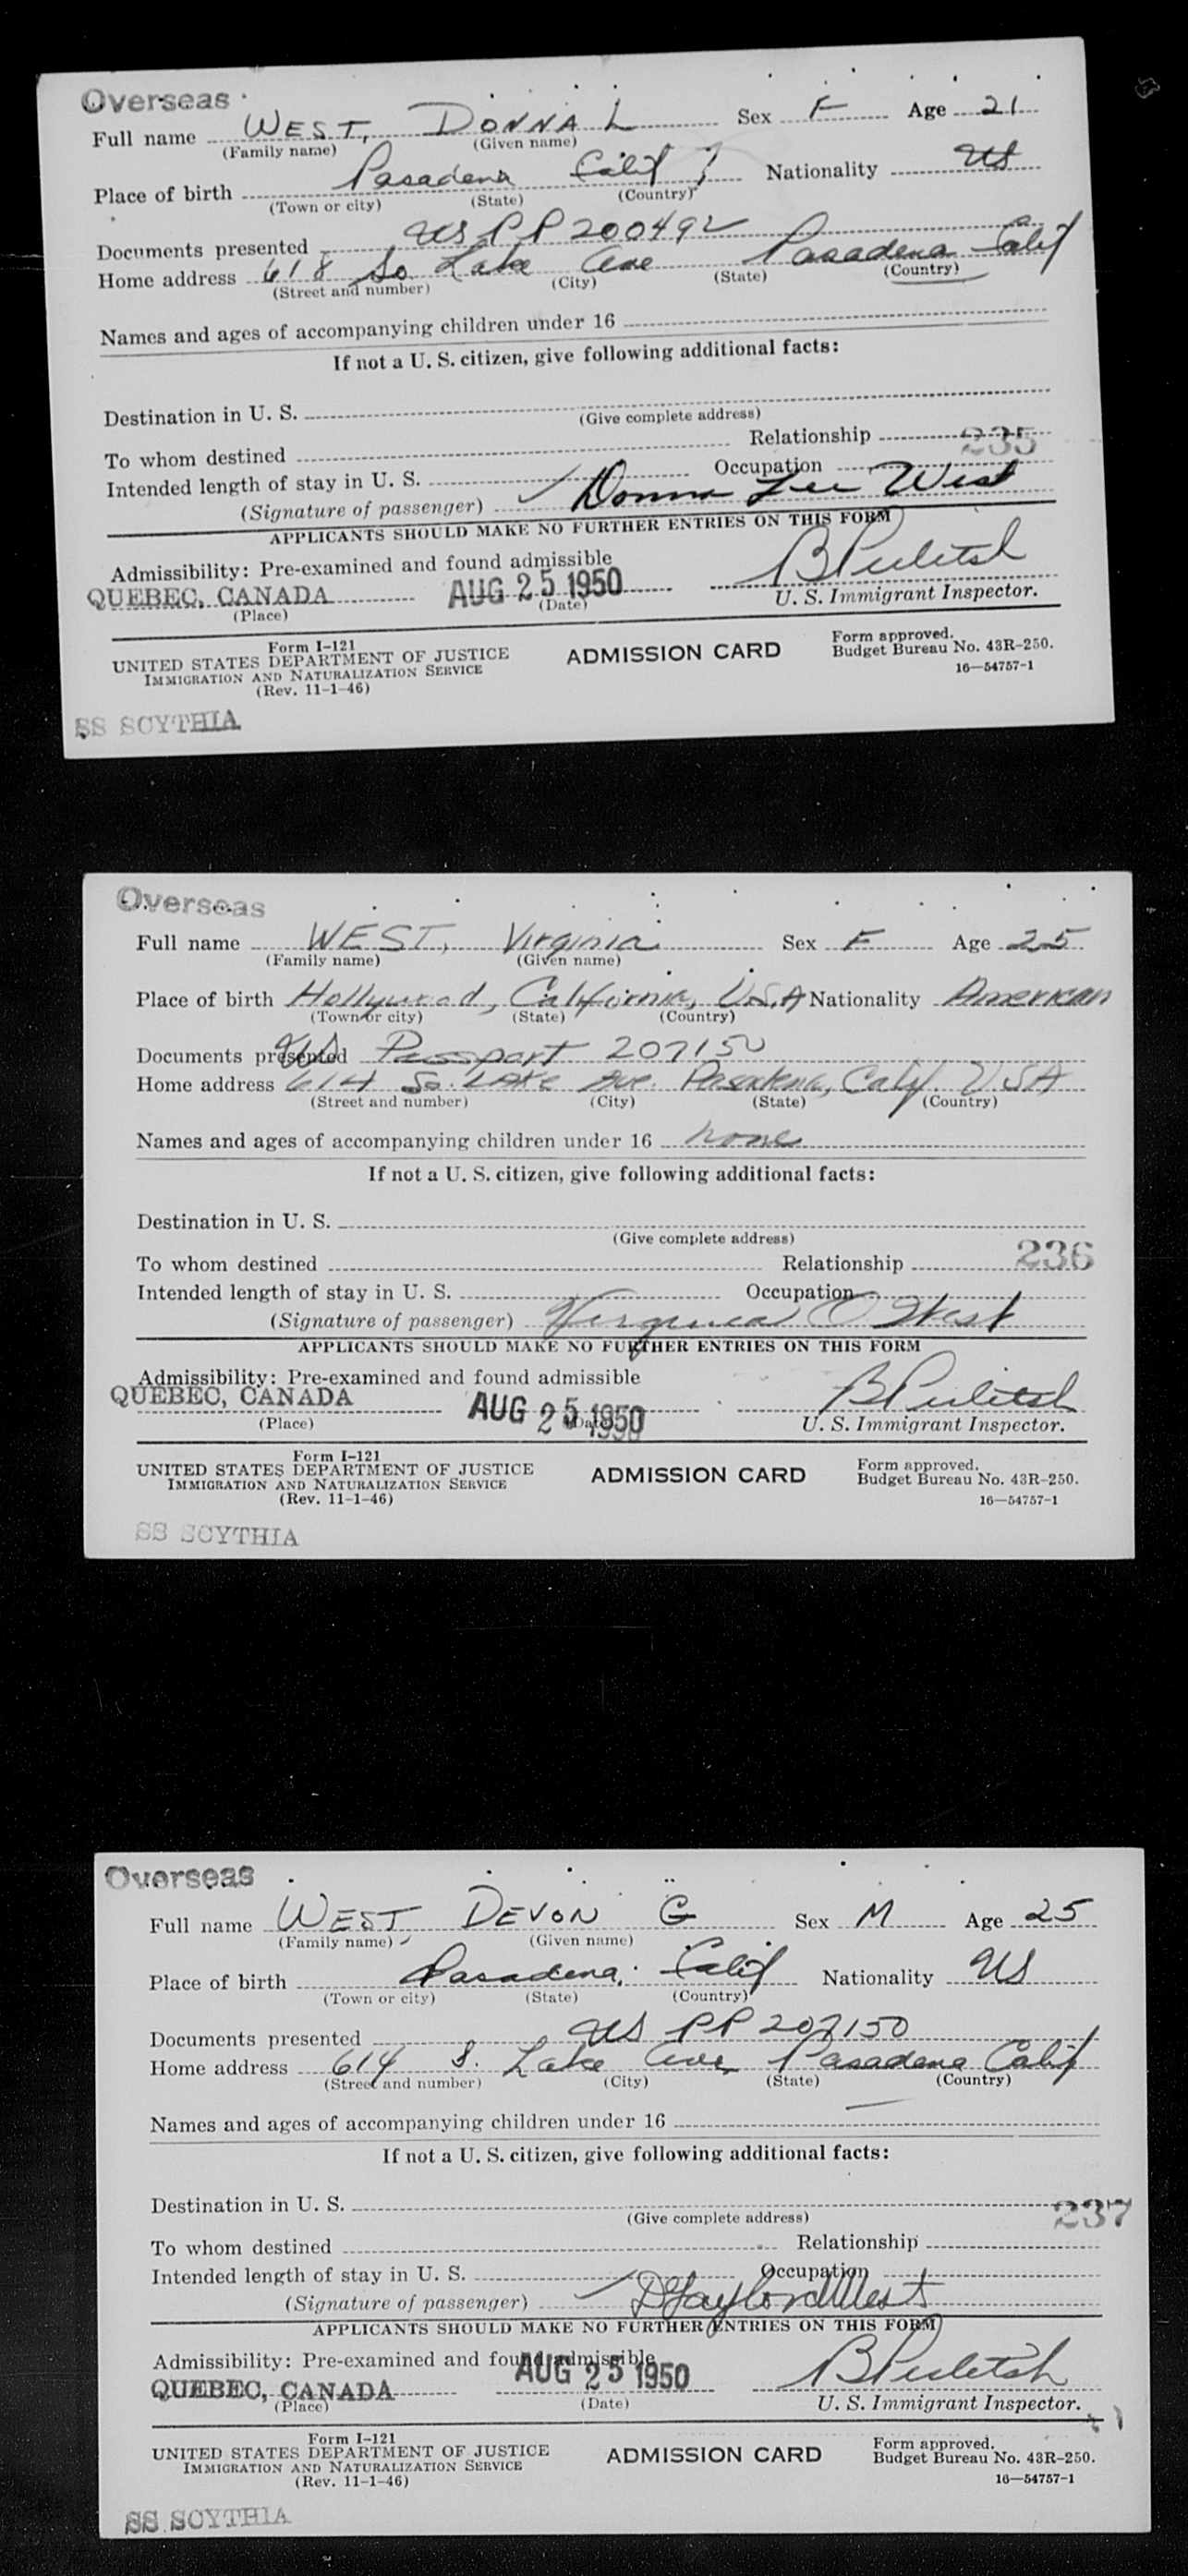 Overseas
Full name WEST, DONNA L Sex F Age 21
(Family name) (Given name)
Place of birth Pasadena Calif Nationality US
(Town or city) (State) (Country)
Documents presented US PP 200492
Home address 618 So Lake Ave Pasadena Calif
(Street and number) (City) (State) (Country)
Names and ages of accompanying children under 16
If not a U. S. citizen, give following additional facts:
Destination in U. S.
(Give complete address)
To whom destined Relationship 235
Intended length of stay in U. S. Occupation
(Signature of passenger) Donna Lee West
APPLICANTS SHOULD MAKE NO FURTHER ENTRIES ON THIS FORM
Admissibility: Pre-examined and found admissible
QUEBEC, CANADA AUG 25 1950
(Place) (Date) U. S. Immigrant Inspector.
Form I-121
UNITED STATES DEPARTMENT OF JUSTICE
IMMIGRATION AND NATURALIZATION SERVICE
(Rev. 11-1-46)
ADMISSION CARD
Form approved.
Budget Bureau No. 43R-250.
16—54757-1
SS SCYTHIA
Overseas
Full name WEST, Virginia Sex F Age 25
(Family name) (Given name)
Place of birth Hollywood, California, U.S.A Nationality American
(Town or city) (State) (Country)
Documents presented US Passport 207150
Home address 614 So. Lake Ave. Pasadena, Calif. USA
(Street and number) (City) (State) (Country)
Names and ages of accompanying children under 16 none
If not a U. S. citizen, give following additional facts:
Destination in U. S.
(Give complete address)
To whom destined Relationship 236
Intended length of stay in U. S. Occupation
(Signature of passenger) Virginia O West
APPLICANTS SHOULD MAKE NO FURTHER ENTRIES ON THIS FORM
Admissibility: Pre-examined and found admissible
QUEBEC, CANADA AUG 25 1950
(Place) (Date) U. S. Immigrant Inspector.
Form I-121
UNITED STATES DEPARTMENT OF JUSTICE
IMMIGRATION AND NATURALIZATION SERVICE
(Rev. 11-1-46)
ADMISSION CARD
Form approved.
Budget Bureau No. 43R-250.
16—54757-1
SS SCYTHIA
Overseas
Full name WEST DEVON G Sex M Age 25
(Family name) (Given name)
Place of birth Pasadena, Calif Nationality US
(Town or city) (State) (Country)
Documents presented US PP 207150
Home address 614 S. Lake Ave, Pasadena Calif
(Street and number) (City) (State) (Country)
Names and ages of accompanying children under 16 —
If not a U. S. citizen, give following additional facts:
Destination in U. S. 237
(Give complete address)
To whom destined Relationship
Intended length of stay in U. S. Occupation
(Signature of passenger) DGaylord West
APPLICANTS SHOULD MAKE NO FURTHER ENTRIES ON THIS FORM
Admissibility: Pre-examined and found admissible
QUEBEC, CANADA AUG 25 1950
(Place) (Date) U. S. Immigrant Inspector.
Form I-121
UNITED STATES DEPARTMENT OF JUSTICE
IMMIGRATION AND NATURALIZATION SERVICE
(Rev. 11-1-46)
ADMISSION CARD
Form approved.
Budget Bureau No. 43R-250.
16—54757-1
SS SCYTHIA